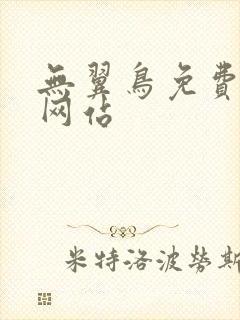 無翼鳥免費
网佔
米特洛波勞斯